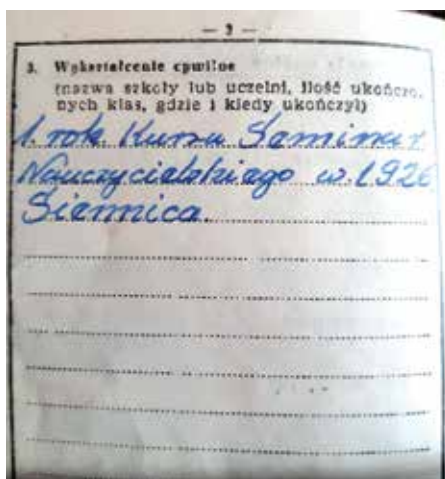 — 3 —
3. Wykształcenie cywilne
(nazwa szkoły lub uczelni, ilość ukończo.
nych klas, gdzie i kiedy ukończył)
1. rok Kursu Seminar.
Nauczycielskiego w 1926
Siennica.